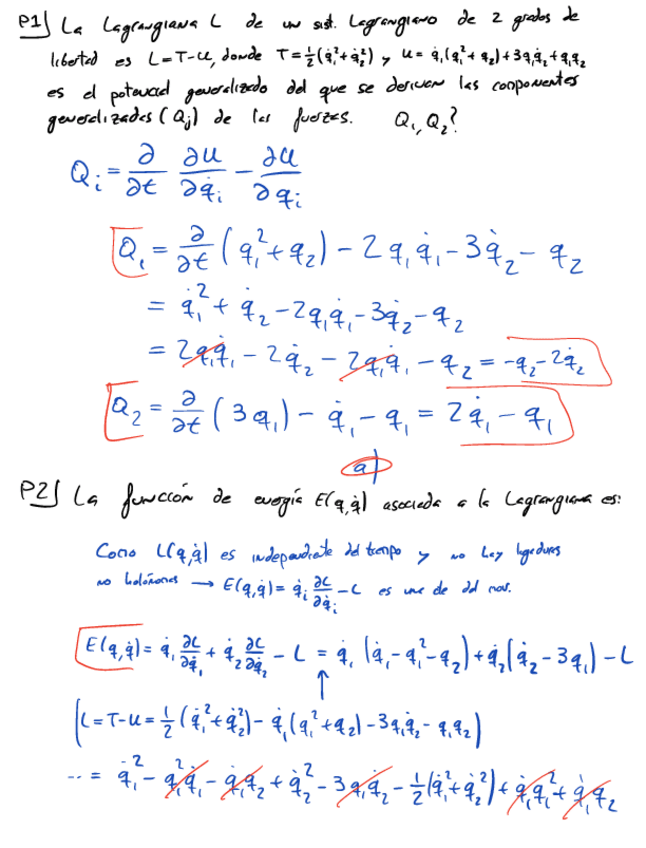 P1) La Lagrangiana L de un sist. Lagrangiano de 2 grados de
libertad es L=T-U, donde T=½(q̇₁²+q̇₂²) y U= q̇₁(q₁²+q₂)+3q₁q̇₂+q₁q₂
es el potencial generalizado del que se derivan las componentes
generalizadas (Qj) de las fuerzas. Q₁, Q₂?
Qᵢ = ∂/∂t ∂U/∂q̇ᵢ - ∂U/∂qᵢ
Q₁ = ∂/∂t (q₁²+q₂) - 2q₁q̇₁ - 3q̇₂ - q₂
= q̇₁² + q̇₂ - 2q₁q̇₁ - 3q̇₂ - q₂
= 2q₁q̇₁ - 2q̇₂ - 2q₁q̇₁ - q₂ = -q₂ - 2q̇₂
Q₂ = ∂/∂t (3q₁) - q̇₁ - q₁ = 2q̇₁ - q₁
a)
P2) La función de energía E(q,q̇) asociada a la Lagrangiana es:
Como L(q,q̇) es independiente del tiempo y no hay ligaduras
no holónomas → E(q,q̇) = q̇ᵢ ∂L/∂q̇ᵢ - L es una cte del mov.
E(q,q̇) = q̇₁ ∂L/∂q̇₁ + q̇₂ ∂L/∂q̇₂ - L = q̇₁ (q̇₁ - q₁² - q₂) + q̇₂ (q̇₂ - 3q₁) - L
↑
(L=T-U = ½(q̇₁²+q̇₂²) - q̇₁(q₁²+q₂) - 3q₁q̇₂ - q₁q₂)
... = q̇₁² - q₁²q̇₁ - q̇₁q₂ + q̇₂² - 3q₁q̇₂ - ½(q̇₁²+q̇₂²) + q̇₁q₁² + q̇₁q₂